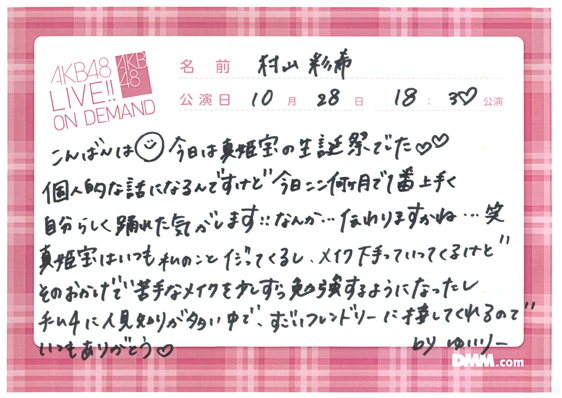 AKB48
LIVE!!
ON DEMAND
AKB
48
名 前 村山 彩希
公演日 10 月 28 日 18 : 30 公演
こんばんは 今日は真姫宝の生誕祭でした♡♡
個人的な話になるんですけど 今日ここ何ヶ月で1番上手く
自分らしく踊れた気がします!!なんか…伝わりますかね…笑
真姫宝はいつも私のこと だってくるし、メイク下手っていってくるけど
そのおかげで苦手なメイクを少しずつ勉強するようになったし
チーム4に人見知りが多い中で、すごいフレンドリーに接してくれるので
いつもありがとう♡ by ゆいりー
DMM.com